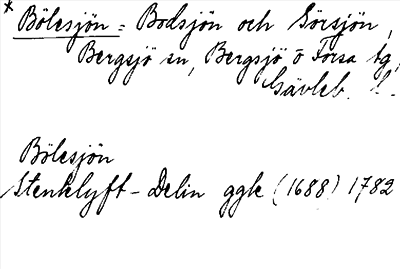 * Bölesjön = Bodsjön och Görsjön,
Bergsjö sn, Bergsjö o Forsa tg,
Gävleb. l.
Bölesjön
Stenklyft - Delin ggk (1688) 1782